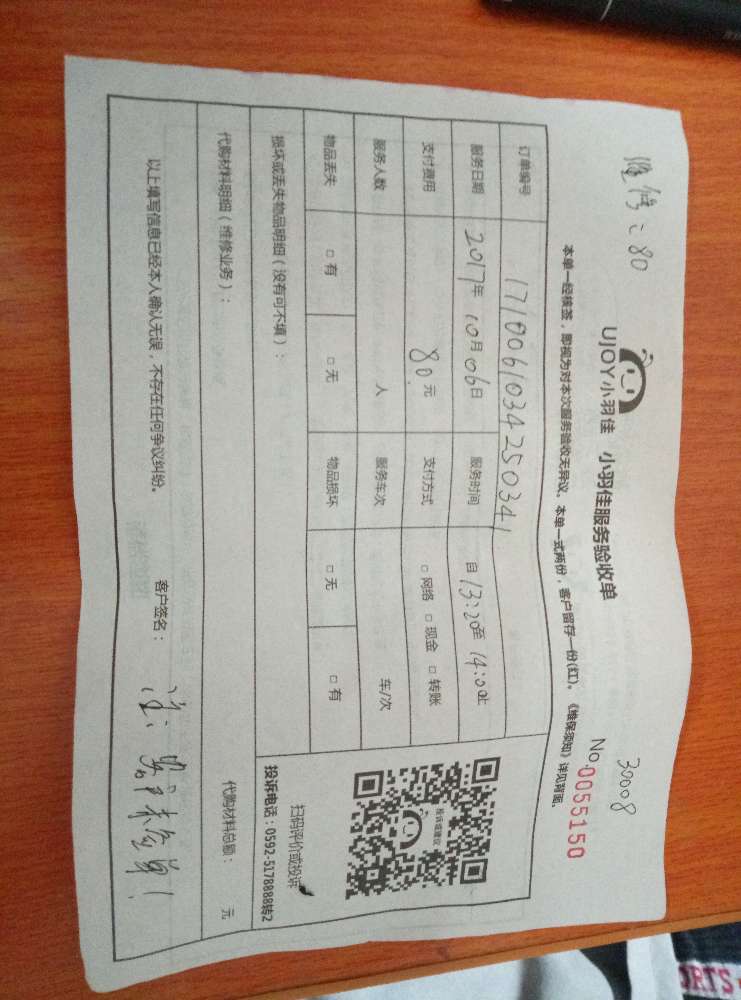 维修：80
30008
UJOY小羽佳 小羽佳服务验收单
No.0055150
本单一经核签，即视为对本次服务验收无异议。本单一式两份，客户留存一份(红)。《维保须知》详见背面。
订单编号 1710061034250341
服务日期 2017年10月06日 服务时间 自13:20至14:00止
支付费用 80元 支付方式 □网络 □现金 □转账
服务人数 人 服务车次 车/次
物品丢失 □有 □无 物品损坏 □无 □有
投诉或建议
扫码评价或投诉
投诉电话：0592-5178888转2
损坏或丢失物品明细（没有可不填）：
代购材料明细（维修业务）：
代购材料总额： 元
以上填写信息已经本人确认无误，不存在任何争议纠纷。
客户签名：
注：客户未签单！